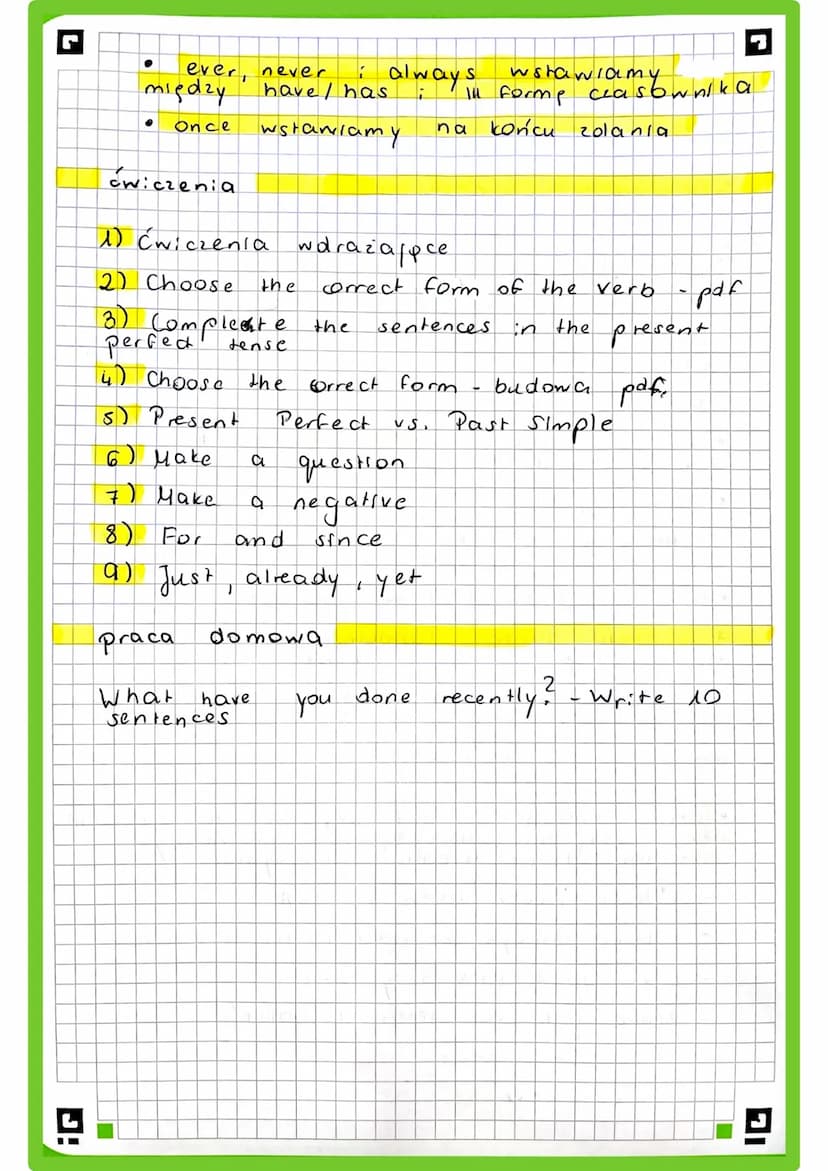 • ever, never i always wstawiamy
między have/has i III formę czasownika
• once wstawiamy na końcu zdania
ćwiczenia
1) Ćwiczenia wdrażające
2) Choose the correct form of the verb - pdf
3) Complete the sentences in the present
perfect tense
4) Choose the correct form - budowa pdf.
5) Present Perfect vs. Past Simple
6) Make a question
7) Make a negative
8) For and since
9) Just, already, yet
praca domowa
What have you done recently? - Write 10
sentences